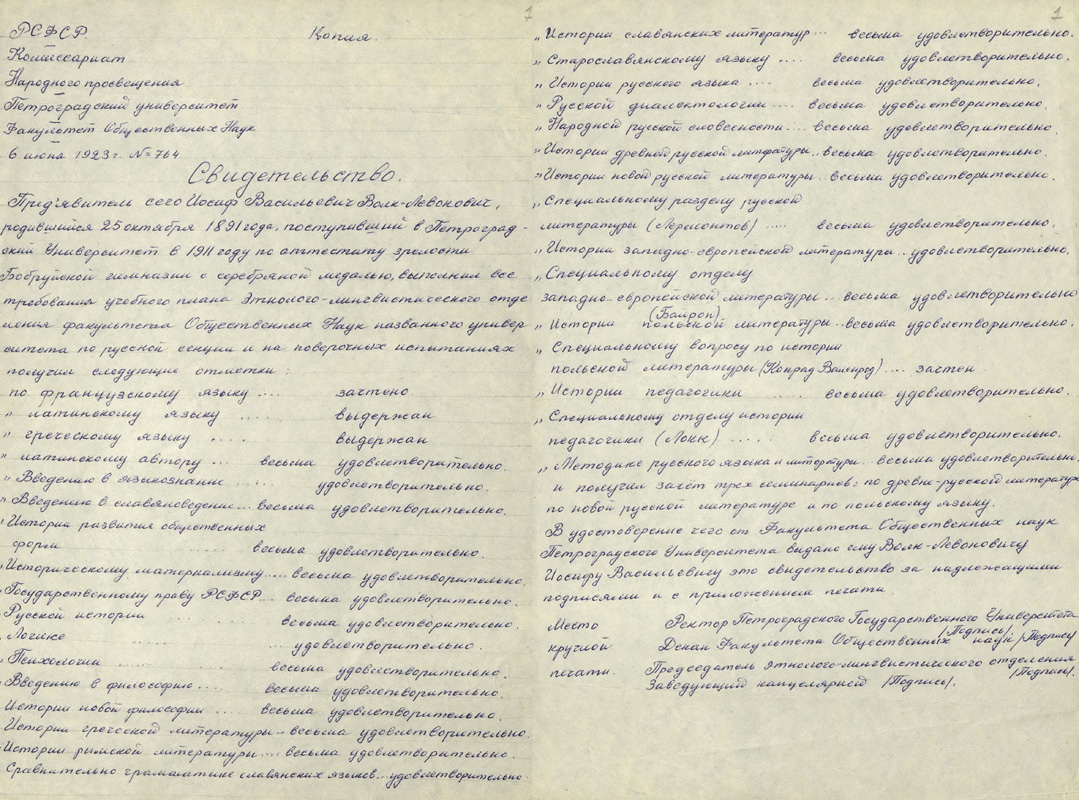 1
РСФСР Копия.
Комиссариат
Народного просвещения
Петроградский университет
Факультет Общественных Наук
6 июня 1923 г. № 764
Свидетельство.
Пред'явитель сего Иосиф Васильевич Волк-Левонович,
родившийся 25 октября 1891 года, поступивший в Петроград-
ский Университет в 1911 году по аттестату зрелости
Бобруйской гимназии с серебряной медалью, выполнил все
требования учебного плана Этнолого-лингвистического отде
ления факультета Общественных Наук названного универ
ситета по русской секции и на поверочных испытаниях
получил следующие отметки:
по французскому языку .... зачтено
" латинскому языку .... выдержал
" греческому языку .... выдержал
" латинскому автору ... весьма удовлетворительно.
" Введению в языкознание ..... удовлетворительно.
" Введению в славяноведение... весьма удовлетворительно.
" Истории развития общественных
форм ..... весьма удовлетворительно.
" Историческому материализму..... весьма удовлетворительно.
" Государственному праву РСФСР... весьма удовлетворительно.
" Русской истории ..... весьма удовлетворительно.
" Логике ..... удовлетворительно.
" Психологии ..... весьма удовлетворительно.
" Введению в философию .... весьма удовлетворительно.
" Истории новой философии .... весьма удовлетворительно.
" Истории греческой литературы.. весьма удовлетворительно.
" Истории римской литературы... весьма удовлетворительно.
" Сравнительно грамматике славянских языков... удовлетворительно
1
" Истории славянских литератур... весьма удовлетворительно.
" Старославянскому языку .... весьма удовлетворительно.
" Истории русского языка .... весьма удовлетворительно.
" Русской диалоктологии .... весьма удовлетворительно.
" Народной русской словесности.... весьма удовлетворительно.
" Истории древней русской литературы.. весьма удовлетворительно.
" Истории новой русской литературы.. весьма удовлетворительно.
" Специальному разделу русской
литературы (Лермонтов) ..... весьма удовлетворительно.
" Истории западно-европейской литературы.. удовлетворительно.
" Специальному отделу
западно-европейской литературы... весьма удовлетворительно
(Байрон)
" Истории польской литературы.. весьма удовлетворительно.
" Специальному вопросу по истории
польской литературы (Конрад Валенрод).... зачтен
" Истории педагогики ..... весьма удовлетворительно.
" Специальному отделу истории
педагогики (Локк) ..... весьма удовлетворительно.
" Методике русского языка и литературы.. весьма удовлетворительно.
и получил зачет трех семинариев: по древне-русской литературе
по новой русской литературе а по польскому языку.
В удостоверение чего от Факультета Общественных наук
Петроградского Университета выдано ему Волк-Левоновичу
Иосифу Васильевичу это свидетельство за надлежащими
подписями и с приложением печати.
Место Ректор Петроградского Государственного Университета
/Подпись/
круглой Декан Факультета Общественных наук /Подпись/
печати. Председатель этнолого-лингвистического отделения
/Подпись/.
Заведующий канцелярией /Подпись/.